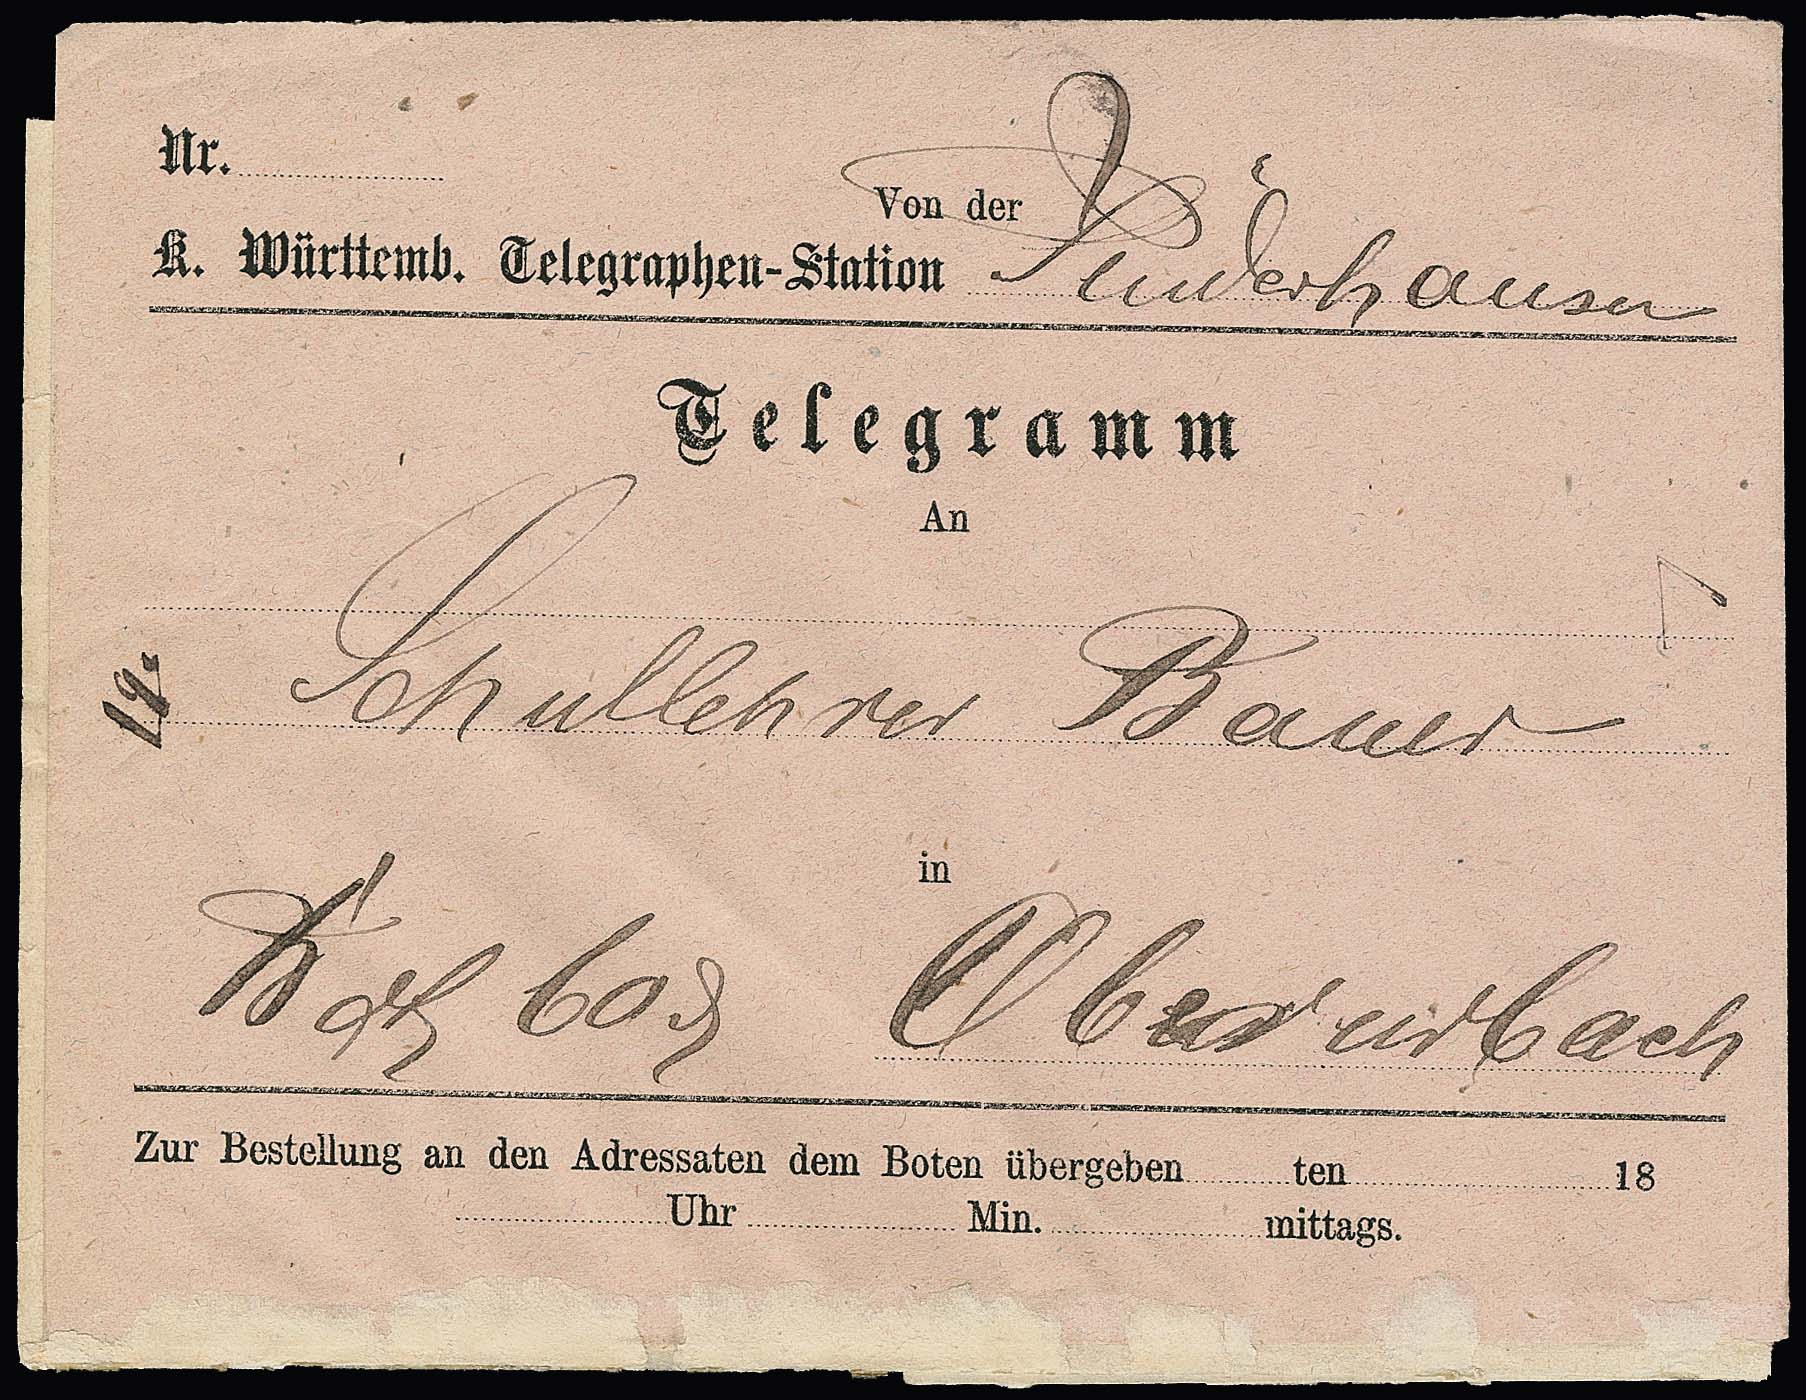 Nr.
Von der
K. Württemb. Telegraphen-Station Plüderhausen
Telegramm
An
Schullehrer Bauer
in
Oberurbach
Zur Bestellung an den Adressaten dem Boten übergeben ten 18
Uhr Min. mittags.